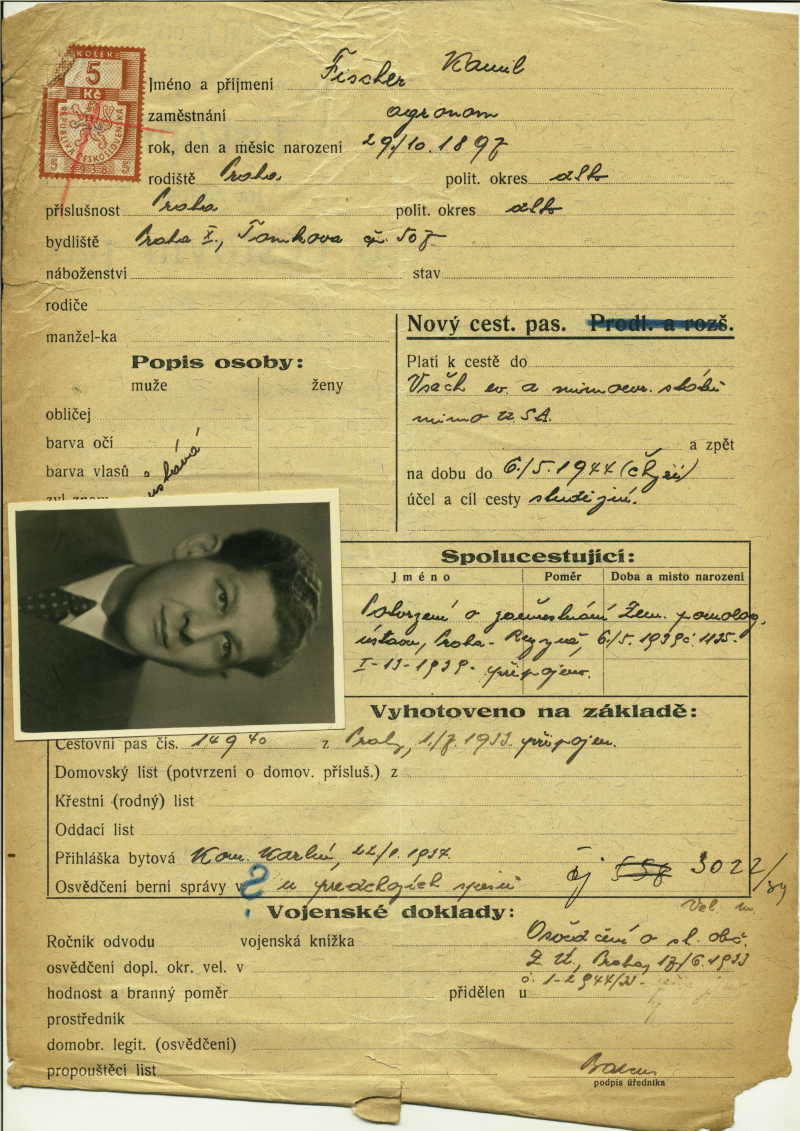 KOLEK
5
Kč
REPUBLIKA ČESKOSLOVENSKÁ
5 1938 5
Jméno a příjmení Fischer Kamil
zaměstnání agronom
rok, den a měsíc narození 29./10. 1897
rodiště Praha polit. okres dtto
příslušnost Praha polit. okres dtto
bydliště Praha X., Tomkova čp. 507
náboženství stav
rodiče
manžel-ka
Nový cest. pas. Prodl. a rozš.
Popis osoby:
muže ženy
obličej
barva očí
barva vlasů
zvl. znam.
Platí k cestě do
Všech ev. a mimoevr. států
mimo USA.
a zpět
na dobu do 6./5. 1944
účel a cíl cesty studijní.
Spolucestující:
Jméno Poměr Doba a místo narození
Potvrzení o zaměstnání Zem. pomolog.
ústavu, Praha - 6./5. 1939
I-13-1939. připojeno.
Vyhotoveno na základě:
Cestovní pas čís. 14940 z Prahy, 1./7. 1933. připojen.
Domovský list (potvrzení o domov. přísluš.) z
Křestní (rodný) list
Oddací list
Přihláška bytová Kom. Karlín, 22/1. 1937.
Osvědčení berní správy v u předchozích spisů
čj 3022/39
Vojenské doklady:
Ročník odvodu vojenská knížka Osvědčení o st. obč.
osvědčení dopl. okr. vel. v Z. Ú., Praha, 17/6. 1933
hodnost a branný poměr přidělen u č. 1-2944/33
prostředník
domobr. legit. (osvědčení)
propouštěcí list
podpis úředníka